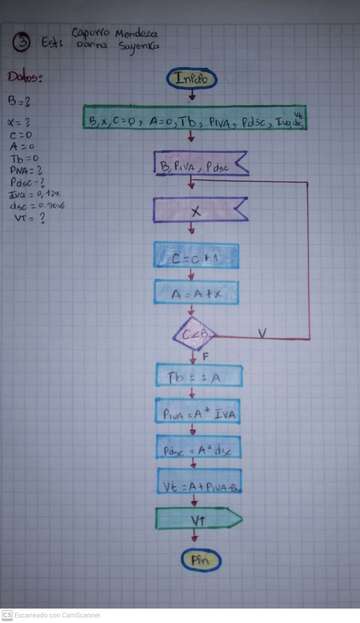 3
Est: Capurro Mendoza
Danna Sayenka
Datos:
B=?
X=?
C=0
A=0
Tb=0
PIVA=?
Pdsc=?
VT=?
Inicio
B, x, C=0, A=0, Tb, PIVA, Pdsc, Iva, dsc, Vt
B, PIVA, Pdsc
X
C=C+1
A=A+x
C<B
V
F
Tb==A
PIVA=A*IVA
Pdsc=A*dsc
VT
Fin
CS Escaneado con CamScanner